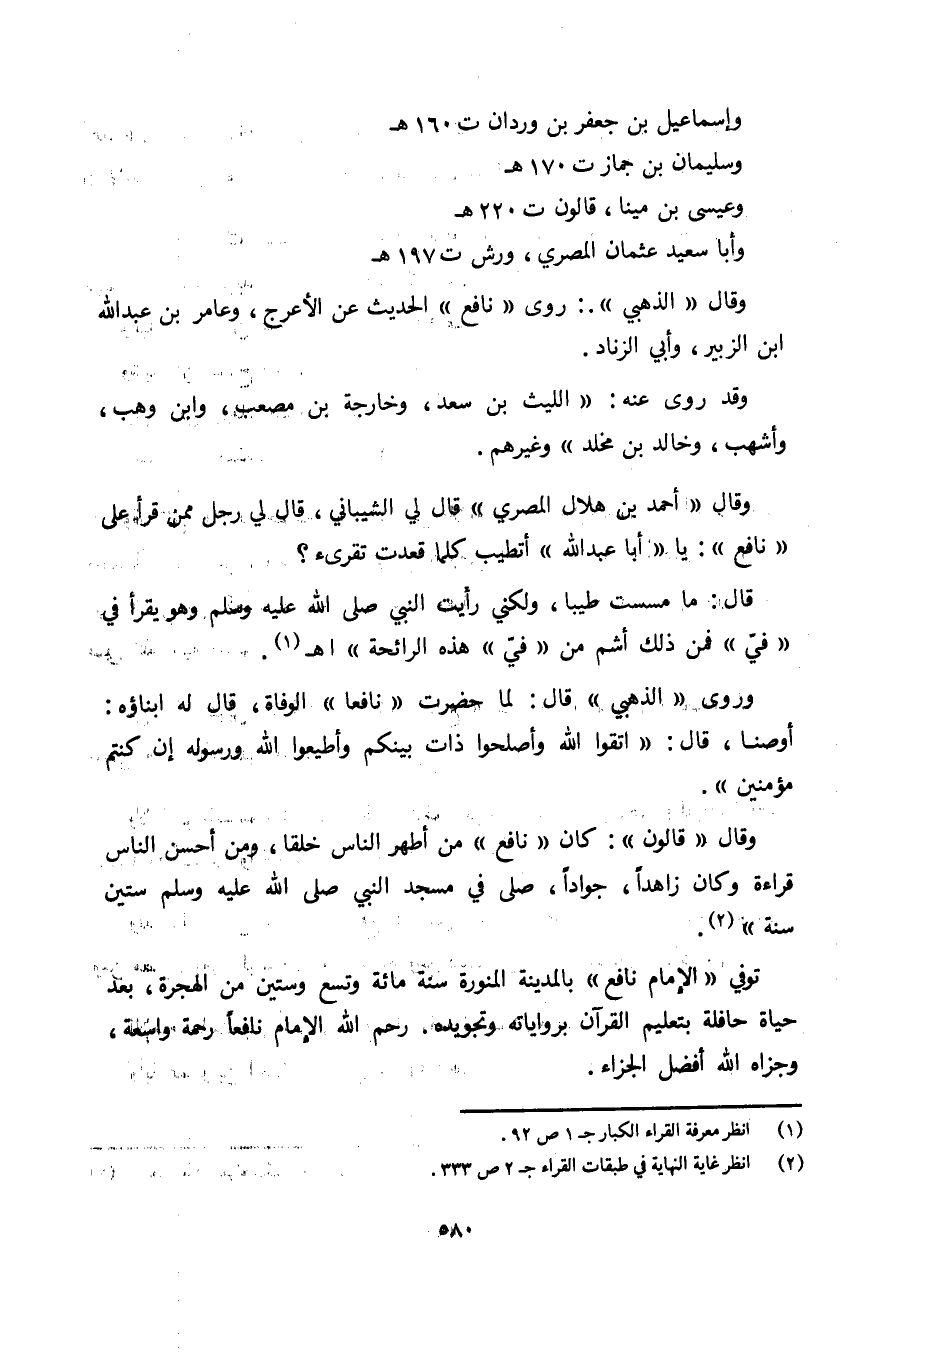 وإسماعيل بن جعفر بن وردان ت ١٦٠ هـ
وسليمان بن جماز ت ١٧٠ هـ
وعيسى بن مينا ، قالون ت ٢٢٠ هـ
وأبا سعيد عثمان المصري ، ورش ت ١٩٧ هـ
وقال « الذهبي » . : روى « نافع » الحديث عن الأعرج ، وعامر بن عبدالله
ابن الزبير ، وأبي الزناد .
وقد روى عنه : « الليث بن سعد ، وخارجة بن مصعب ، وابن وهب ،
وأشهب ، وخالد بن مخلد » وغيرهم .
وقال « أحمد بن هلال المصري » قال لي الشيباني ، قال لي رجل ممن قرأ على
« نافع » : يا « أبا عبدالله » أتطيب كلما قعدت تقرىء ؟
قال : ما مسست طيبا ، ولكني رأيت النبي صلى الله عليه وسلم وهو يقرأ في
« فيّ » فمن ذلك أشم من « فيّ » هذه الرائحة » اهـ (١) .
وروى « الذهبي » قال : لما حضرت « نافعا » الوفاة ، قال له ابناؤه :
أوصنا ، قال : « اتقوا الله وأصلحوا ذات بينكم وأطيعوا الله ورسوله إن كنتم
مؤمنين » .
وقال « قالون » : كان « نافع » من أطهر الناس خلقا ، ومن أحسن الناس
قراءة وكان زاهداً ، جواداً ، صلى في مسجد النبي صلى الله عليه وسلم ستين
سنة » (٢) .
توفي « الإمام نافع » بالمدينة المنورة سنة مائة وتسع وستين من الهجرة ، بعد
حياة حافلة بتعليم القرآن برواياته وتجويده . رحم الله الإمام نافعاً رحمة واسعة ،
وجزاه الله أفضل الجزاء .
(١) انظر معرفة القراء الكبار جـ ١ ص ٩٢ .
(٢) انظر غاية النهاية في طبقات القراء جـ ٢ ص ٣٣٣ .
٥٨٠